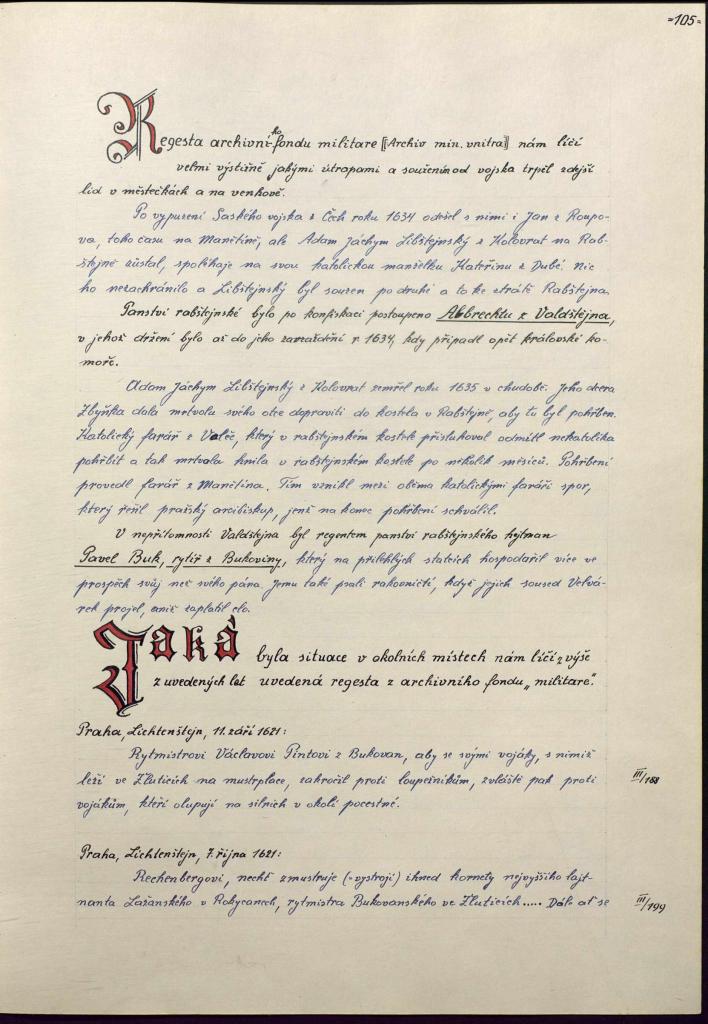 =105=
Regesta archivního fondu militare [Archiv min. vnitra] nám líčí
velmi výstižně jakými útrapami a soužením od vojska trpěl zdejší
lid v městečkách a na venkově.
Po vypuzení Saského vojska z Čech roku 1634 odešel s nimi i Jan z Roupo-
va, toho času na Manětíně, ale Adam Jáchym Libštejnský z Kolovrat na Rab-
štejně zůstal, spoléhaje na svou katolickou manželku Kateřinu z Dubé. Nic
ho nezachránilo a Libštejnský byl souzen po druhé a to ke ztrátě Rabštejna.
Panství rabštejnské bylo po konfiskaci postoupeno Albrechtu z Valdštejna,
v jehož držení bylo až do jeho zavraždění r. 1634, kdy připadl opět královské ko-
moře.
Adam Jáchym Libštejnský z Kolovrat zemřel roku 1635 v chudobě. Jeho dcera
Zbyňka dala mrtvolu svého otce dopraviti do kostela v Rabštejně, aby tu byl pohřben.
Katolický farář z Valče, který v rabštejnském kostele přisluhoval odmítl nekatolíka
pohřbít a tak mrtvola hnila v rabštejnském kostele po několik měsíců. Pohřbení
provedl farář z Manětína. Tím vznikl mezi oběma katolickými faráři spor,
který řešil pražský arcibiskup, jenž na konec pohřbení schválil.
V nepřítomnosti Valdštejna byl regentem panství rabštejnského hejtman
Pavel Buk, rytíř z Bukoviny, který na přilehlých statcích hospodařil více ve
prospěch svůj než svého pána. Jemu také psali rakovničtí, když jejich soused Velvá-
rek projel, aniž zaplatil clo.
Jaká byla situace v okolních místech nám líčí z výše
z uvedených let uvedená regesta z archivního fondu „militare".
Praha, Lichtenštejn, 11. září 1621:
Rytmistrovi Václavovi Pintovi z Bukovan, aby se svými vojáky, s nimiž
leží ve Žluticích na mustrplace, zakročil proti loupežníkům, zvláště pak proti
III/168
vojákům, kteří olupují na silnicích v okolí pocestné.
Praha, Lichtenštejn, 7. října 1621:
Rechenbergovi, nechť zmustruje (=vystrojí) ihned kornety nejvyššího lajt-
nanta Lažanského v Rokycanech, rytmistra Bukovanského ve Žluticích..... Dále ať se
III/199